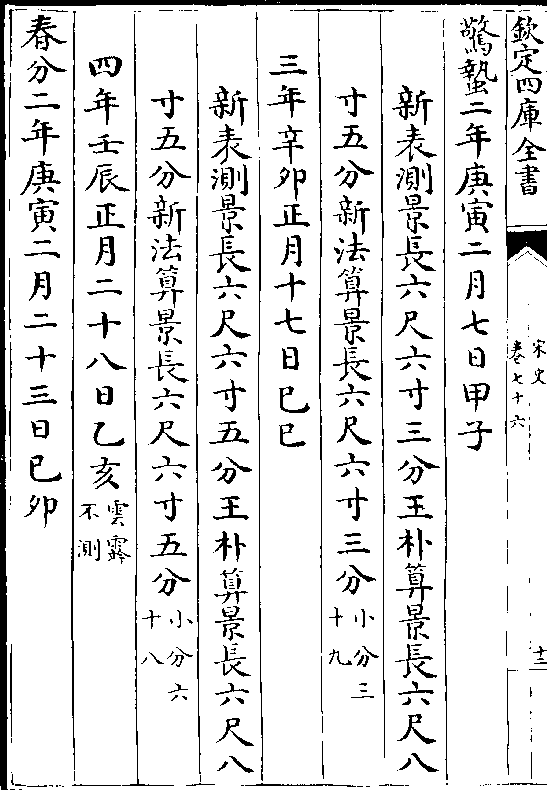 欽定四庫全書
宋史
卷七十六
十三
驚蟄二年庚寅二月七日甲子
新表測景長六尺六寸三分王朴算景長六尺八
寸五分新法算景長六尺六寸三分小分三十九
三年辛卯正月十七日巳巳
新表測景長六尺六寸五分王朴算景長六尺八
寸五分新法算景長六尺六寸五分小分六十八
四年壬辰正月二十八日乙亥雲霧不測
春分二年庚寅二月二十三日巳卯